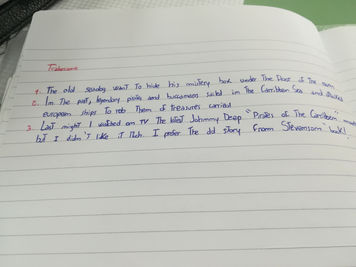 1. The old seadog want to hide his military box under the floor of the room
2. In the past, legendary pirates and buccaneers sailed in the Carribean Sea and attacked
european ships to rob them of treasures carried.
3. Last night I watched on TV the latest Johnny Deep "Pirates of The Carribean"
but I didn't like it much. I prefer the old story from Stevenson book!